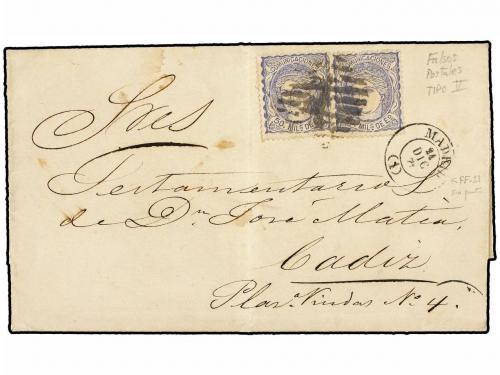 COMUNICACIONES COMUNICACIONES
50 MILS DE E. 50 MILS DE E.
Falsos
Postales
TIPO V
MADRID
24
DIC
Sres
Testamentarios
de Dn José Matía,
Cadiz
Plaza Viudas No 4.